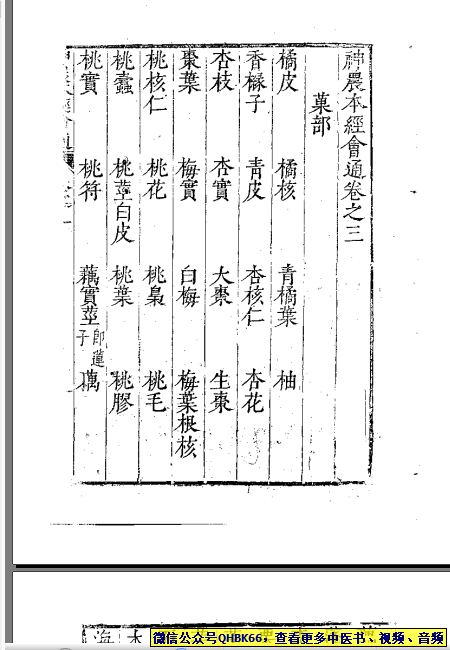 神農本經會通卷之三
菓部
橘皮 橘核 青橘葉 柚
香櫞子 青皮 杏核仁 杏花
杏枝 杏實 大棗 生棗
棗葉 梅實 白梅 梅葉根核
桃核仁 桃花 桃梟 桃毛
桃蠹 桃莖白皮 桃葉 桃膠
桃實 桃符 藕實莖即蓮子 藕
微信公众号QHBK66，查看更多中医书、视频、音频